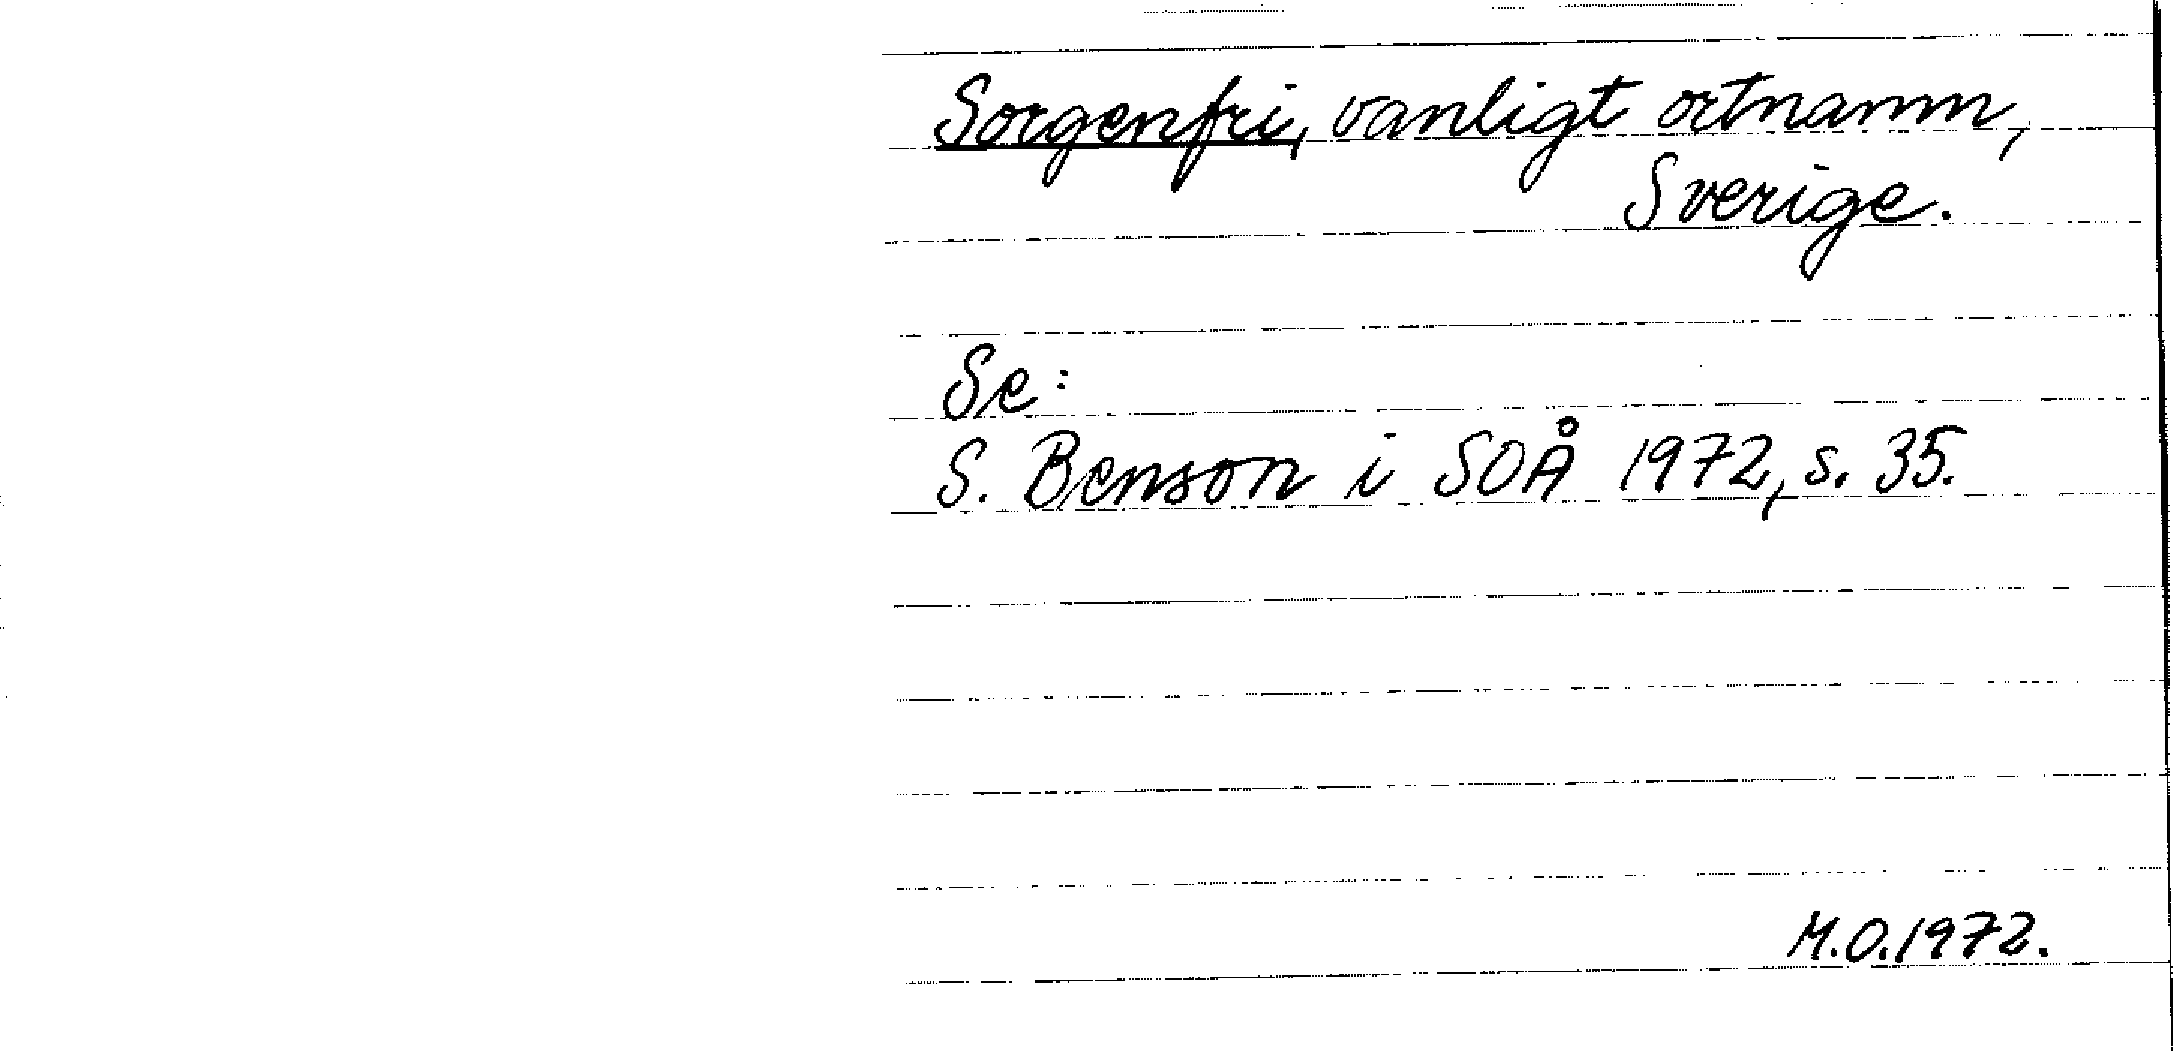 Sorgenfri, vanligt ortnamn,
Sverige.
Se:
S. Benson i SOÅ 1972, s. 35.
M.O.1972.